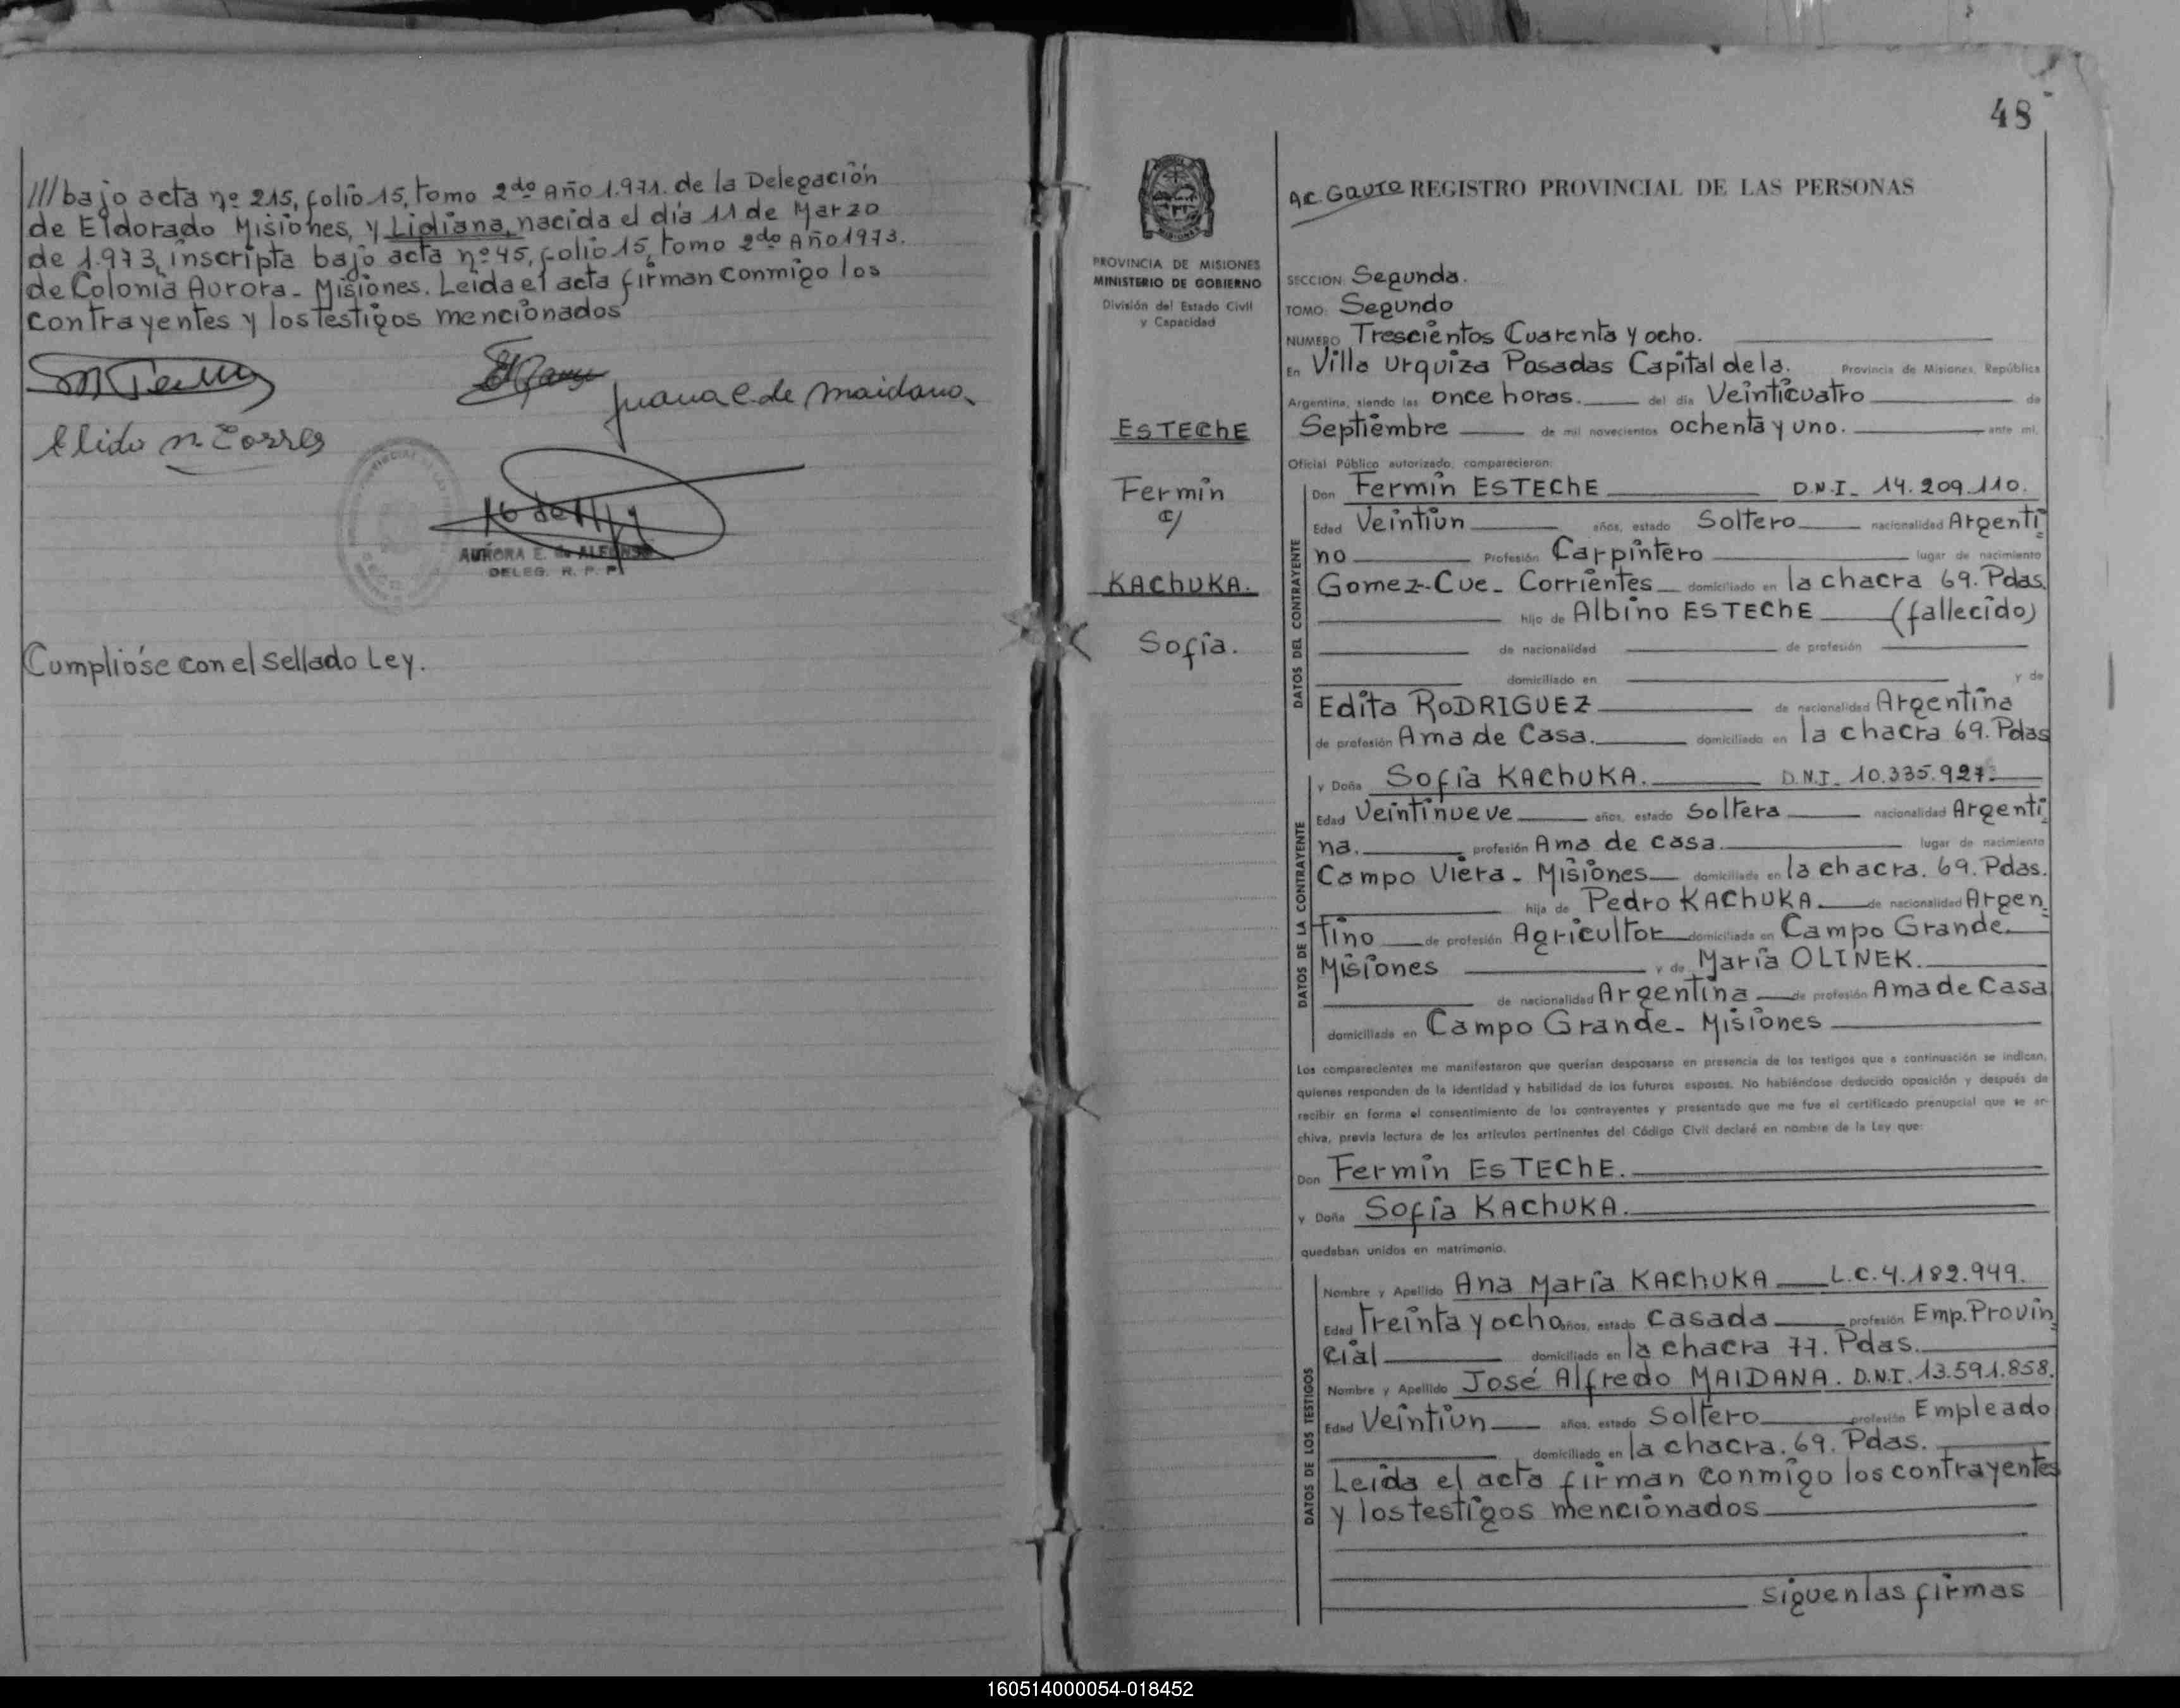 ///bajo acta nº 215, folio 15, tomo 2do Año 1.971. de la Delegación
de Eldorado Misiones, y Lidiana, nacida el día 11 de Marzo
de 1.973, inscripta bajo acta nº 45, folio 15, tomo 2do Año 1973.
de Colonia Aurora - Misiones. Leida el acta firman conmigo los
contrayentes y los testigos mencionados
Juana C. de Maidana
Elido n. Torres
AURORA E. de ALFONSO
DELEG. R. P. P.
Cumplióse con el sellado Ley.
48
PROVINCIA DE MISIONES
MINISTERIO DE GOBIERNO
División del Estado Civil
y Capacidad
ESTEChE
Fermín
c/
KAChUKA.
Sofía.
Ac. Gauto REGISTRO PROVINCIAL DE LAS PERSONAS
SECCION: Segunda.
TOMO: Segundo
NUMERO Trescientos Cuarenta y ocho.
En Villa Urquiza Posadas Capital de la. Provincia de Misiones, República
Argentina, siendo las once horas. del día Veinticuatro de
Septiembre de mil novecientos ochenta y uno. ante mí,
Oficial Público autorizado, comparecieron:
DATOS DEL CONTRAYENTE
Don Fermín ESTEChE D.N.I. 14.209.110.
Edad Veintiun años, estado Soltero nacionalidad Argenti
no Profesión Carpintero lugar de nacimiento
Gomez-Cue - Corrientes domiciliado en la chacra 69. Pdas.
hijo de Albino ESTEChE (fallecido)
de nacionalidad de profesión
domiciliado en y de
Edita RODRIGUEZ de nacionalidad Argentina
de profesión Ama de Casa. domiciliada en la chacra 69. Pdas
DATOS DE LA CONTRAYENTE
y Doña Sofía KAChUKA. D.N.I. 10.335.927.
Edad Veintinueve años, estado Soltera nacionalidad Argenti
na. profesión Ama de casa. lugar de nacimiento
Campo Viera - Misiones domiciliada en la chacra. 69. Pdas.
hija de Pedro KAChUKA. de nacionalidad Argen
tino de profesión Agricultor domiciliado en Campo Grande.
Misiones y de María OLINEK.
de nacionalidad Argentina de profesión Ama de Casa
domiciliada en Campo Grande - Misiones
Los comparecientes me manifestaron que querían desposarse en presencia de los testigos que a continuación se indican,
quienes responden de la identidad y habilidad de los futuros esposos. No habiéndose deducido oposición y después de
recibir en forma el consentimiento de los contrayentes y presentado que me fue el certificado prenupcial que se ar-
chiva, previa lectura de los artículos pertinentes del Código Civil declaré en nombre de la Ley que:
Don Fermín ESTEChE.
y Doña Sofía KAChUKA.
quedaban unidos en matrimonio.
DATOS DE LOS TESTIGOS
Nombre y Apellido Ana María KAChUKA L.C. 4.182.949.
Edad Treinta y ocho años, estado Casada profesión Emp. Provin
cial domiciliado en la chacra 77. Pdas.
Nombre y Apellido José Alfredo MAIDANA. D.N.I. 13.591.858.
Edad Veintiun años, estado Soltero profesión Empleado
domiciliado en la chacra. 69. Pdas.
Leida el acta firman conmigo los contrayentes
y los testigos mencionados
siguen las firmas
160514000054-018452